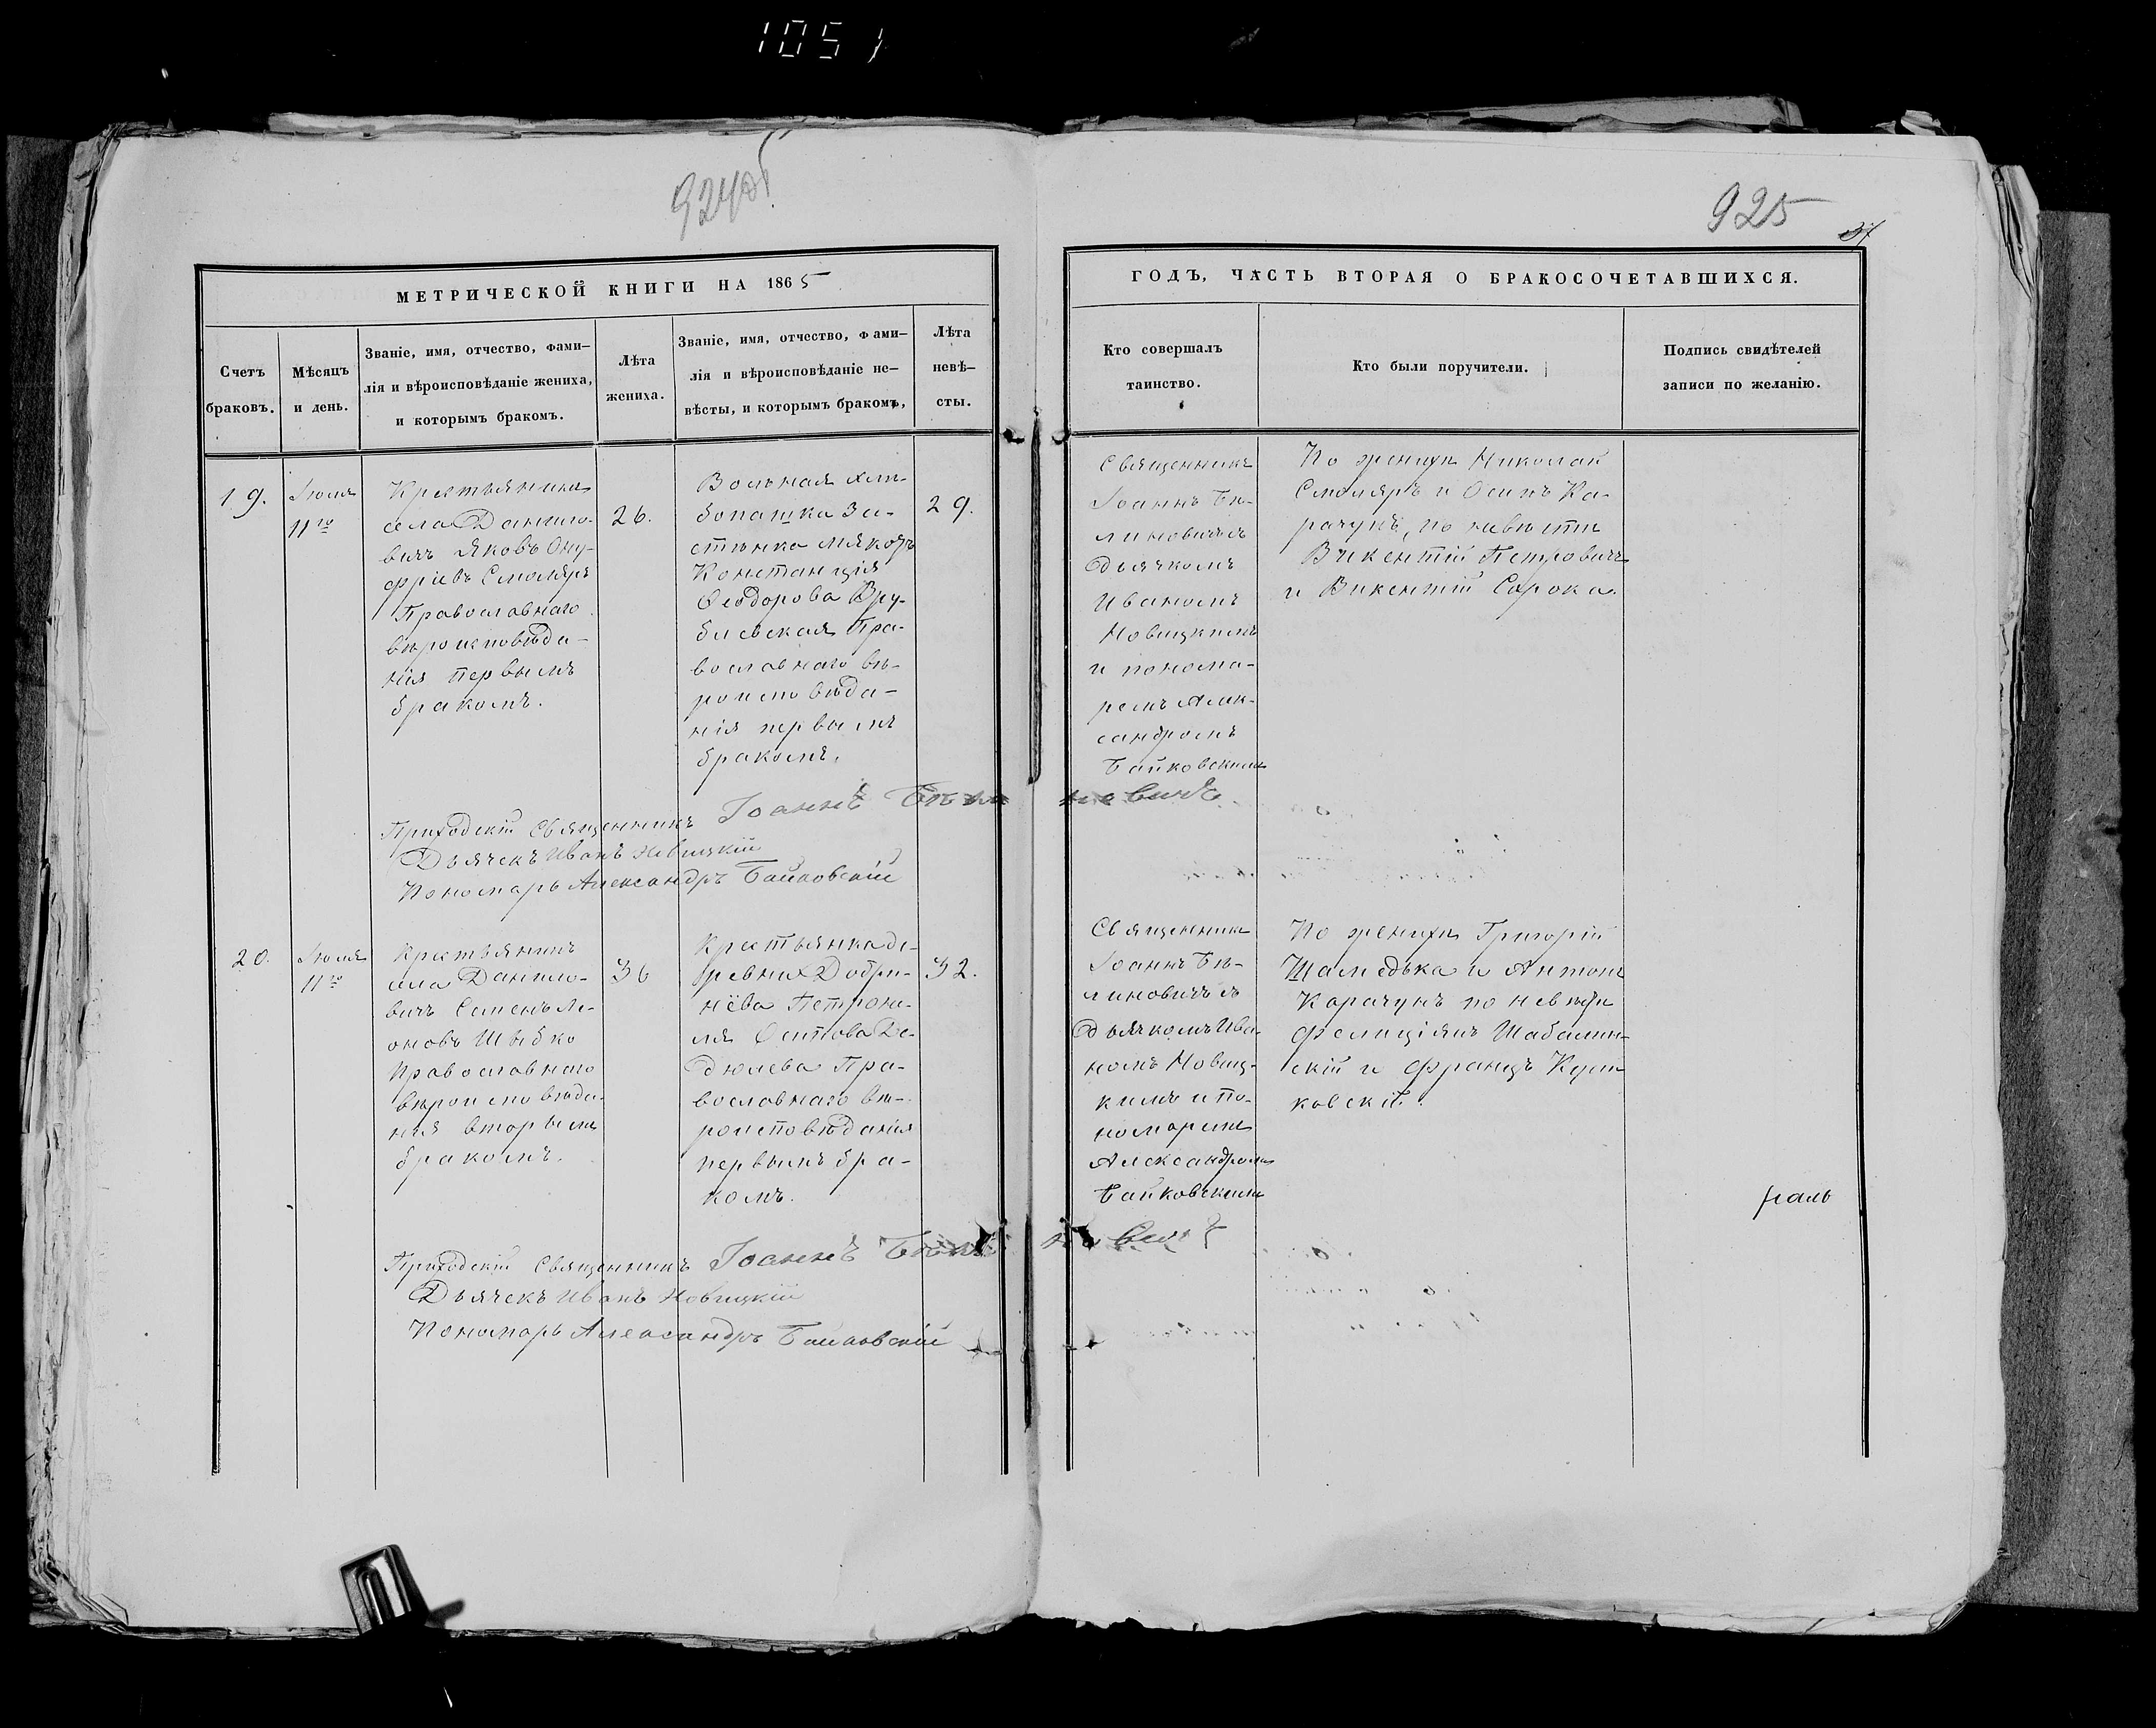 1051
924об
925
МЕТРИЧЕСКОЙ КНИГИ НА 1865
ГОДЪ, ЧАСТЬ ВТОРАЯ О БРАКОСОЧЕТАВШИХСЯ.
Счетъ
браковъ.
Мѣсяцъ
и день.
Званіе, имя, отчество, фами–
лія и вѣроисповѣданіе жениха,
и которымъ бракомъ.
Лѣта
жениха.
Званіе, имя, отчество, фами–
лія и вѣроисповѣданіе не–
вѣсты, и которымъ бракомъ,
Лѣта
невѣ–
сты.
Кто совершалъ
таинство.
Кто были поручители.
Подпись свидѣтелей
записи по желанію.
19.
Іюля
11го
Крестьянинъ
села Данило-
вичъ Яковъ Ону-
фріевъ Смоляръ
Православнаго
вѣроисповѣда-
нія первымъ
бракомъ.
26.
Вольная хлѣ-
бопашка За-
стѣнка
Констанція
Ѳеодорова Вру-
блевская Пра-
вославнаго вѣ-
роисповѣда-
нія первымъ
бракомъ.
29.
Священникъ
Іоаннъ Бѣ-
линовичъ съ
дьячкомъ
Иваномъ
Новицкимъ
и понома-
ремъ Алек-
сандромъ
Байковскимъ
По женихѣ Николай
Смоляръ и Осипъ Ка-
рачунъ, по невѣстѣ
Викентій Петровичъ
и Викентій Сорока.
Приходскій Священникъ Іоаннъ Бѣлиновичъ
Дьячекъ Иванъ Новицкій
Пономарь Александръ Байковскій
20.
Іюля
11го
Крестьянинъ
села Данило-
вичъ Семенъ Ле-
оновъ Шибко
Православнаго
вѣроисповѣда-
нія вторымъ
бракомъ.
36
Крестьянка де-
ревни Добри-
нёва Петрони-
ля Осипова Де-
дюлева Пра-
вославнаго вѣ-
роисповѣданія
первымъ бра-
комъ.
32.
Священникъ
Іоаннъ Бѣ-
линовичъ съ
дьячкомъ Ива-
номъ Новиц-
кимъ и по-
номаремъ
Александромъ
Байковскимъ
По женихѣ Григорій
Шамедька и Антонъ
Карачунъ по невѣстѣ
Фелиціянъ Шабалин-
скій и Францъ
ковскій.
Приходскій Священникъ Іоаннъ Бѣлиновичъ
Дьячекъ Иванъ Новицкій
Пономарь Александръ Байковскій